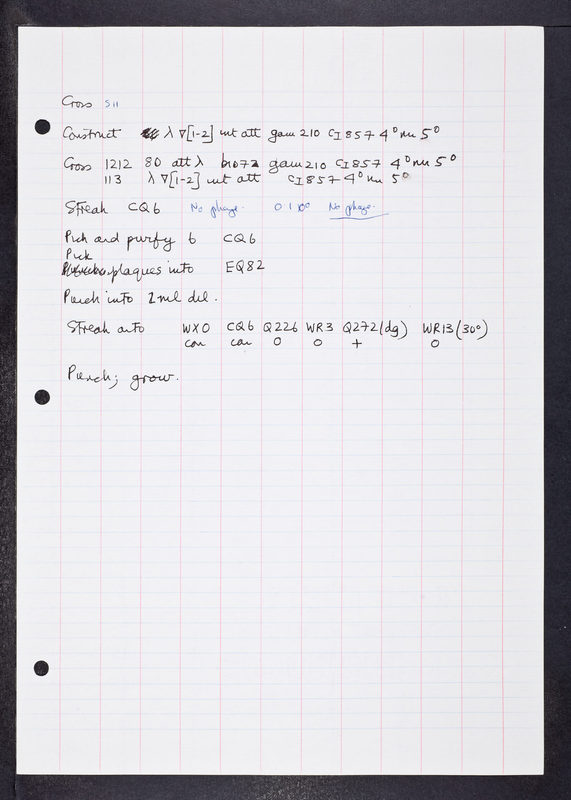 Cross 511
Construct λ ∇[1-2] int att gam 210 cI857 4° nu 5°
Cross 1212 80 att λ bio72 gam 210 cI857 4° nu 5°
113 λ ∇[1-2] int att cI857 4° nu 5°
Streak CQ6 No phage. 0 1 100 No phage.
Pick and purify 6 CQ6
Pick
plaques into EQ82
Punch into 2ml dil.
Streak onto WX0 CQ6 Q226 WR3 Q272(dg) WR13(30°)
con con 0 0 + 0
Punch; grow.